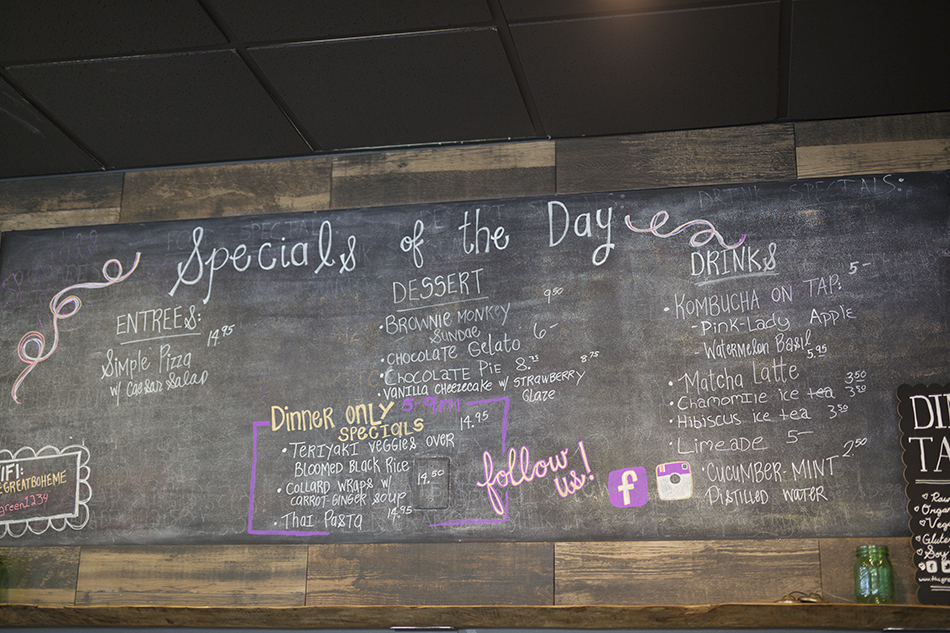 Specials of the Day
ENTREES:
Simple Pizza 14.95
w/ Caesar Salad
DESSERT
• BROWNIE MONKEY 9.50
SUNDAE
• CHOCOLATE Gelato 6-
• CHOCOLATE PIE 8.75
• VANILLA CHEEZECAKE w/ STRAWBERRY 8.75
GLAZE
Dinner only 5-9pm
SPECIALS 14.95
• TERIYAKI VEGGIES OVER
BLOOMED BLACK RICE
• COLLARD WRAPS W/ 14.50
CARROT-GINGER SOUP
• THAI PASTA 14.95
follow
us!
f
DRINKS
• KOMBUCHA ON TAP: 5-
- Pink-Lady Apple
- Watermelon Basil
• Matcha Latte 5.95
• Chamomile ice tea 3.50
• Hibiscus ice tea 3.50
3.50
• Limeade 5-
• CUCUMBER-MINT 2.50
Distilled Water
DRINK SPECIALS:
IFI:
EGREATBOHEME
green1234
DI
TA
Raw
Organ
Veg
Gluten
Soy
www.thegre